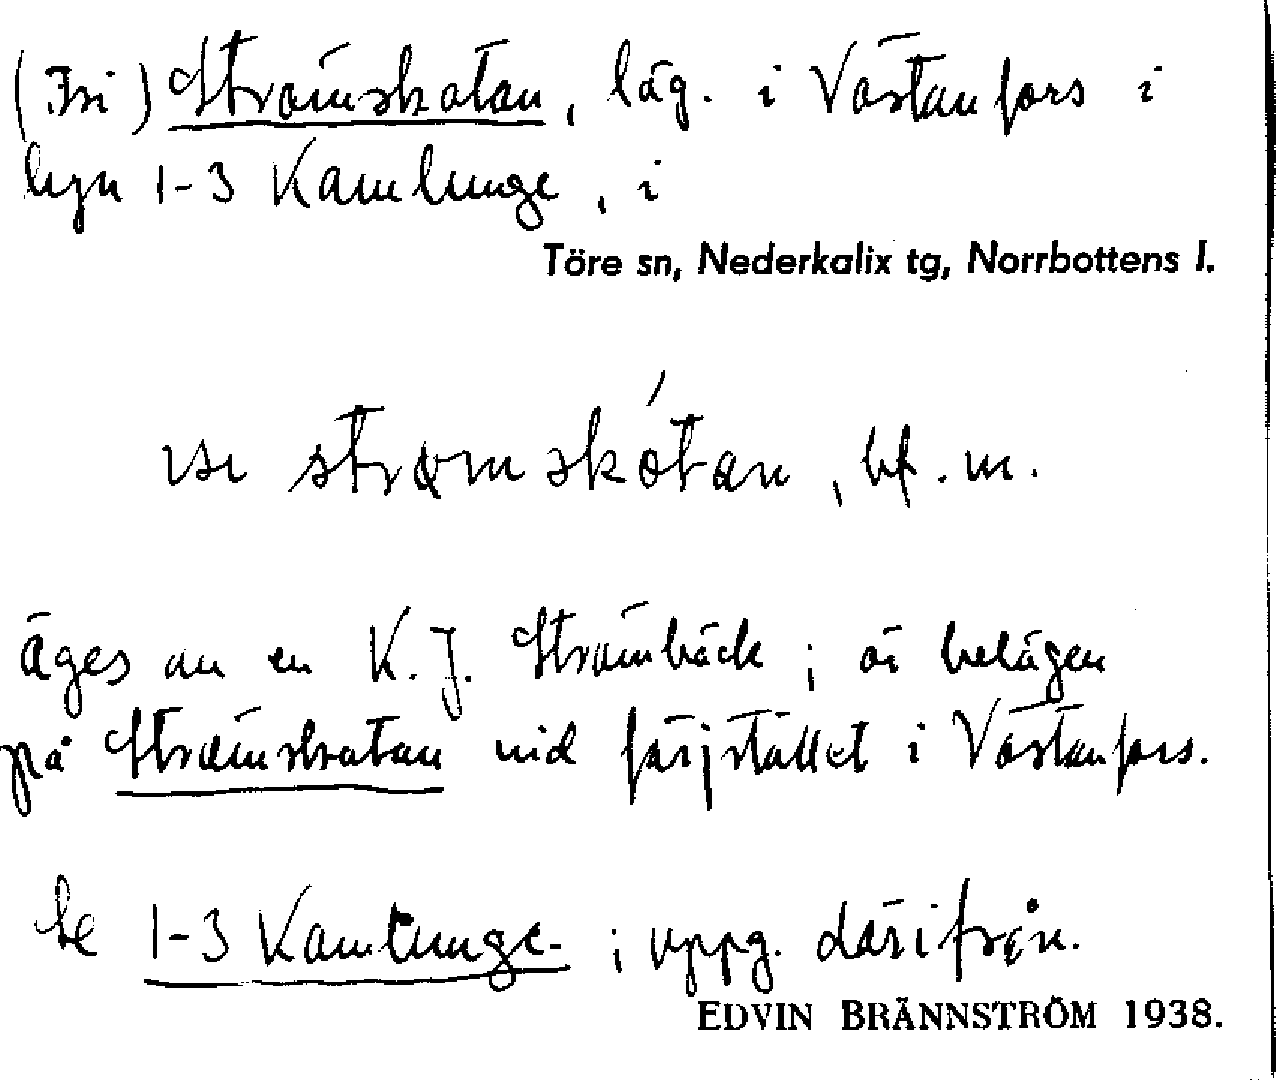 (Fri) Strömskatan, läg. i Västanfors i
byn 1-3 Kamlunge, i
Töre sn, Nederkalix tg, Norrbottens l.
strømskátan, bf. m.
äges av en K. J. Strömbäck; är belägen
på Strömskatan vid färjstället i Västanfors.
Se 1-3 Kamlunge; uppg. därifrån.
EDVIN BRÄNNSTRÖM 1938.